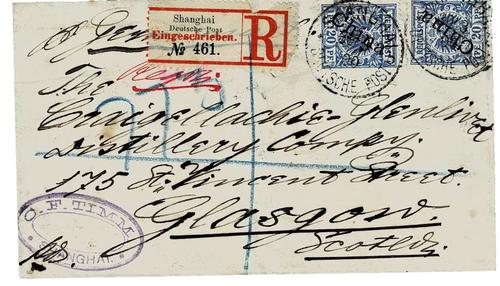 Shanghai
Deutsche Post
Eingeschrieben.
№ 461.
R
China
China
DEUTSCHE POST
The
Craigellachie-Glenlivet
Distillery Compy.
175 St. Vincent Street.
Glasgow.
Scotld.
O. F. TIMM
SHANGHAI.